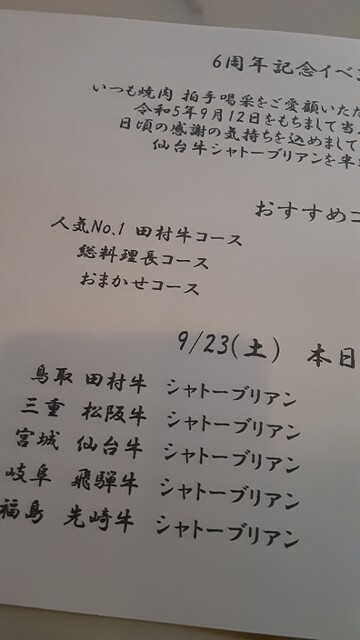 6周年記念イベ
いつも焼肉 拍手喝采をご愛顧いただ
令和5年9月12日をもちまして当
日頃の感謝の気持ちを込めまして
仙台牛シャトーブリアンを半
おすすめコ
人気No.1 田村牛コース
総料理長コース
おまかせコース
9/23(土) 本日
鳥取 田村牛 シャトーブリアン
三重 松阪牛 シャトーブリアン
宮城 仙台牛 シャトーブリアン
岐阜 飛騨牛 シャトーブリアン
福島 先崎牛 シャトーブリアン